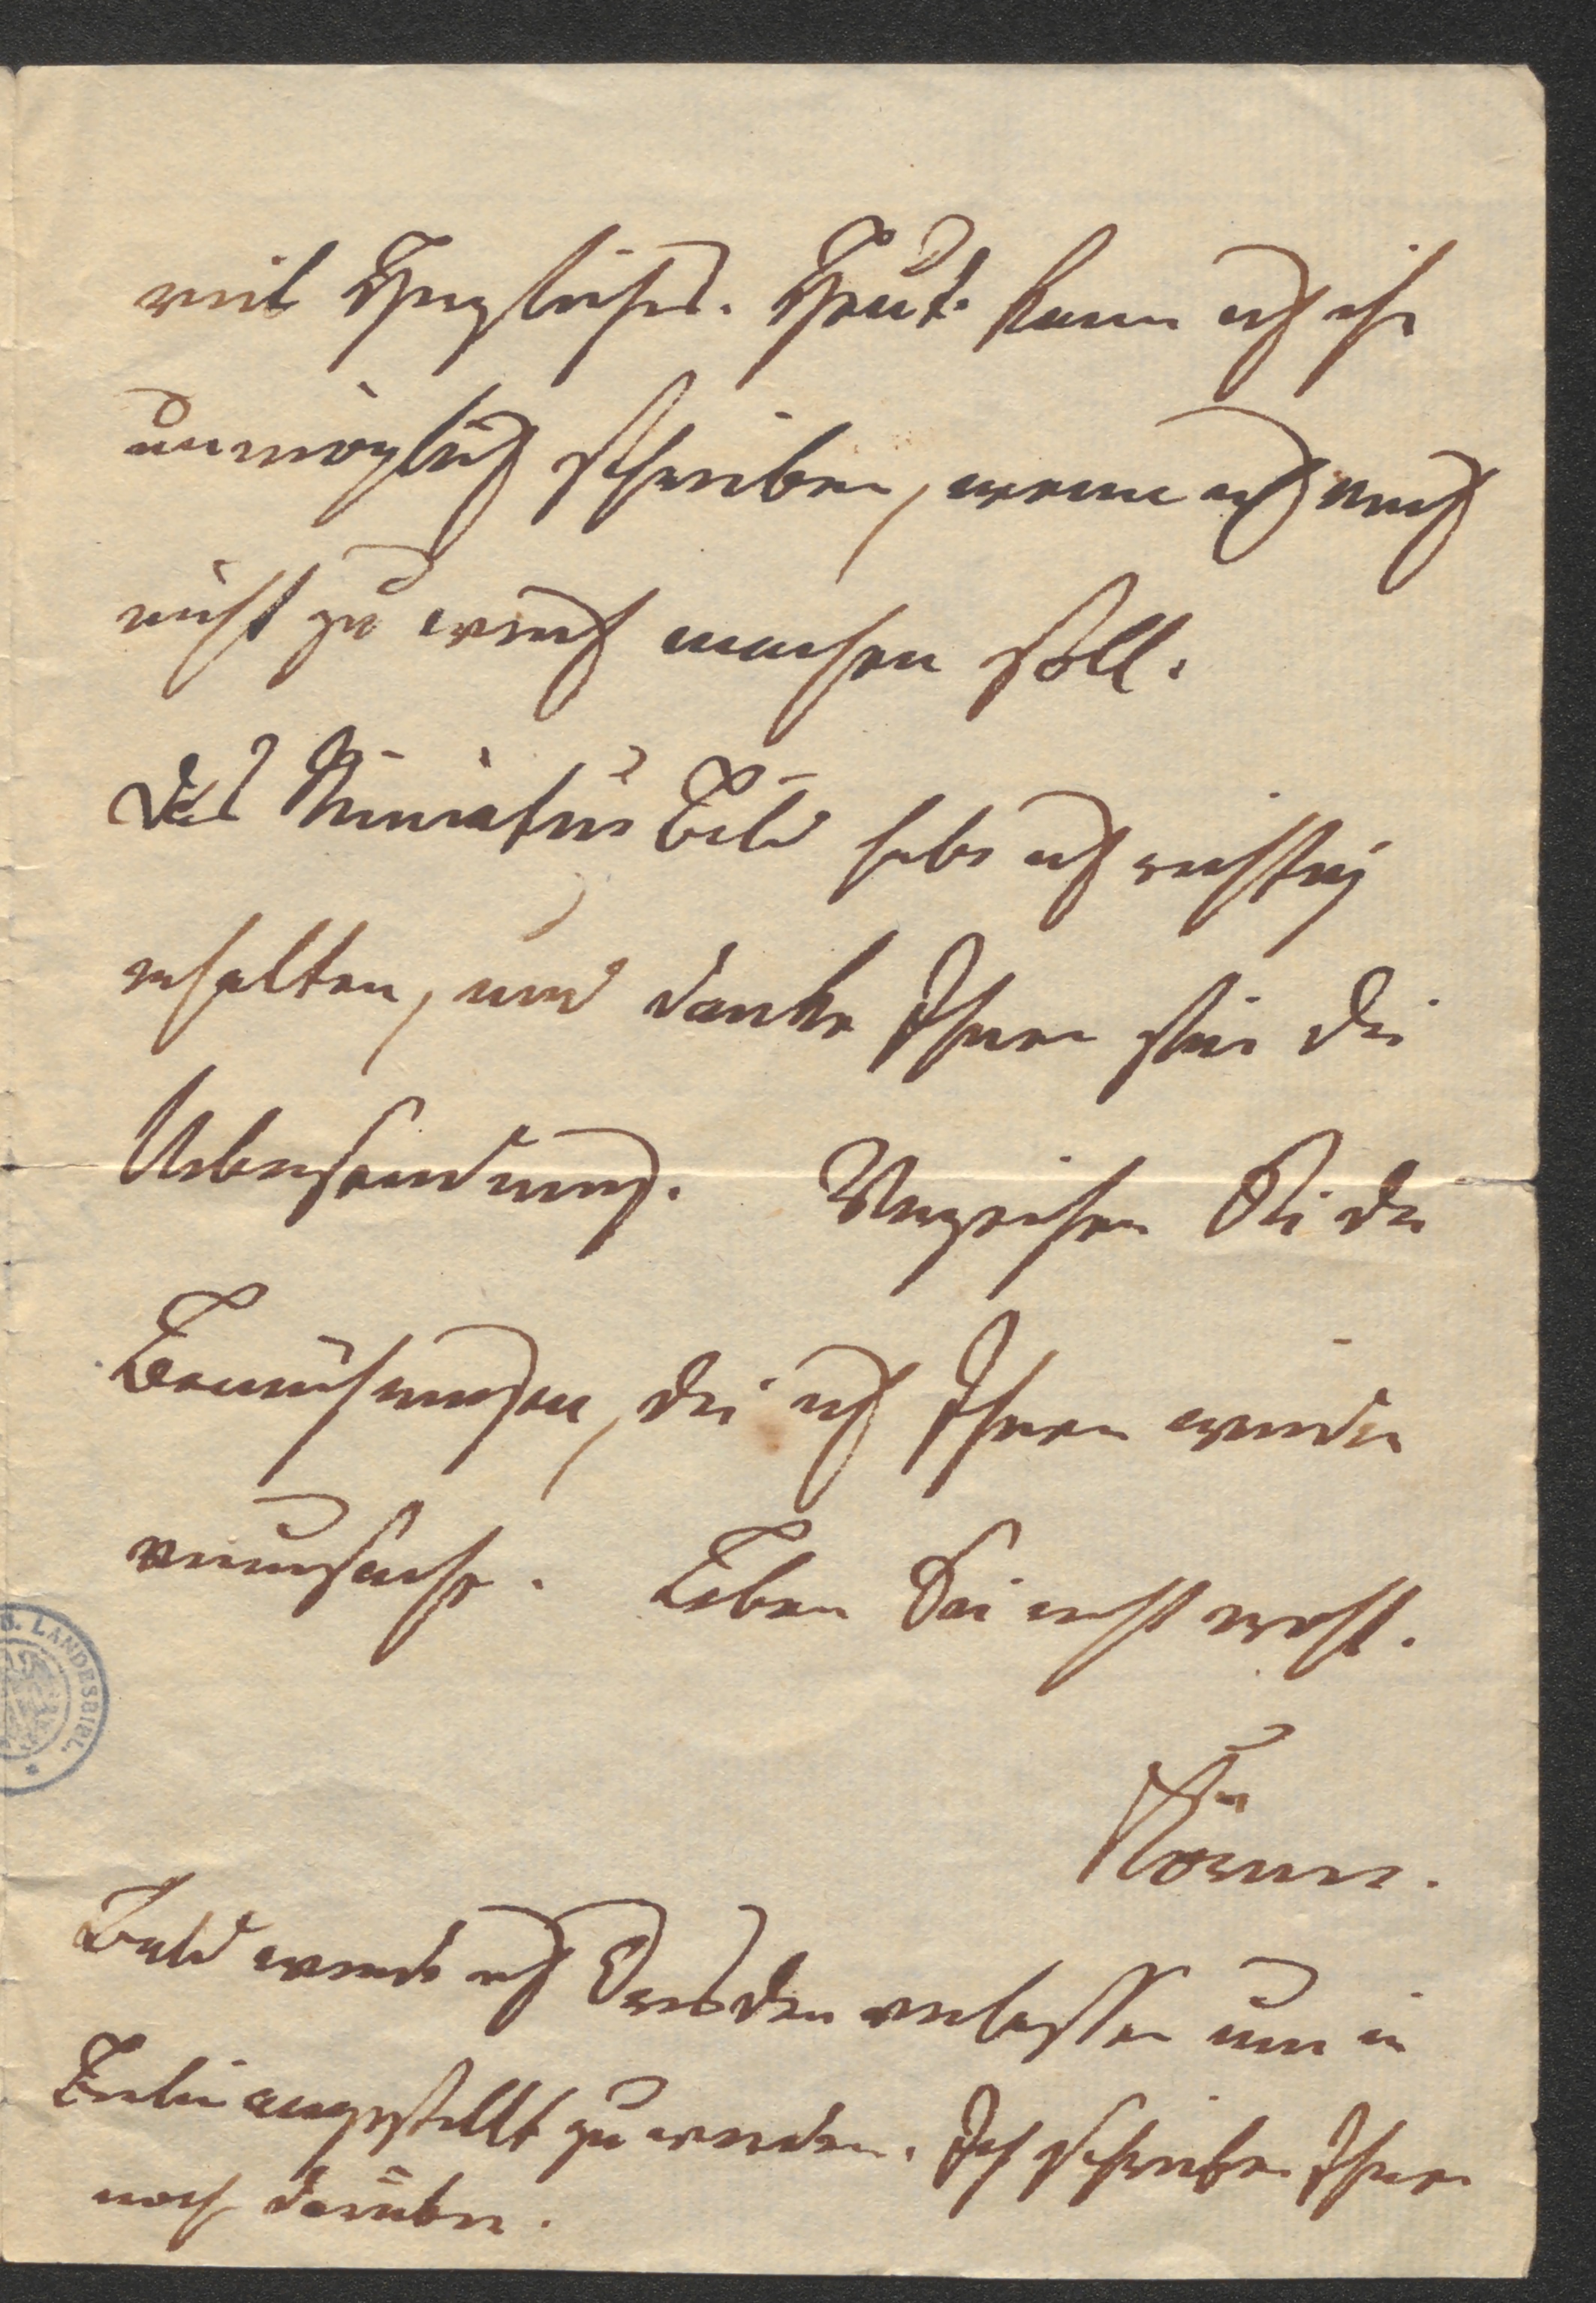 viel Herzliches. Heute kann ich ihr
unmöglich schreiben, wenn ich mich
nicht zu wach machen soll.
Das Miniatur Bild habe ich richtig
erhalten, und danke Ihnen für die
Uebersendung. Verzeihen Sie die
Bemühungen, die ich Ihnen wieder
verursache. Leben Sie recht wohl.
Ihr
Körner.
Bald werde ich Dresden verlassen um in
Berlin angestellt zu werden. Ich schreibe Ihnen
noch darüber.
LANDESBIBL.